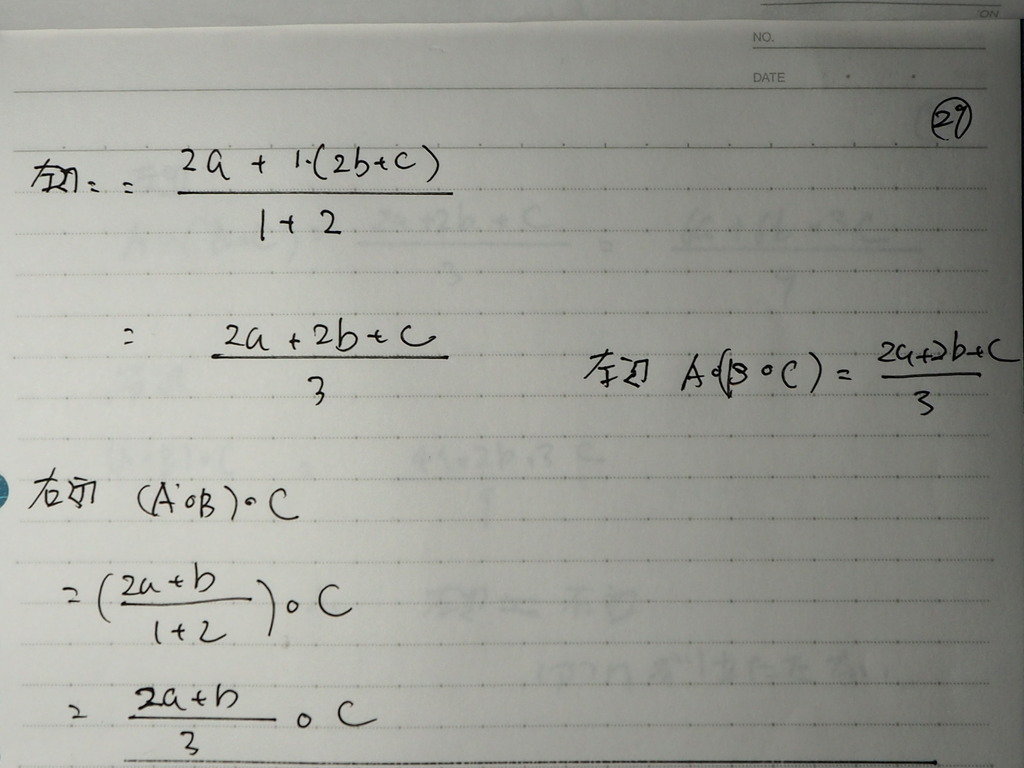 ON
NO.
DATE
29
左边 = = (2a + 1·(2b+c)) / (1+2)
= (2a + 2b + c) / 3
左边 A∘(B∘C) = (2a+2b+c) / 3
右边 (A∘B)∘C
= ((2a+b) / (1+2)) ∘ C
= (2a+b) / 3 ∘ C